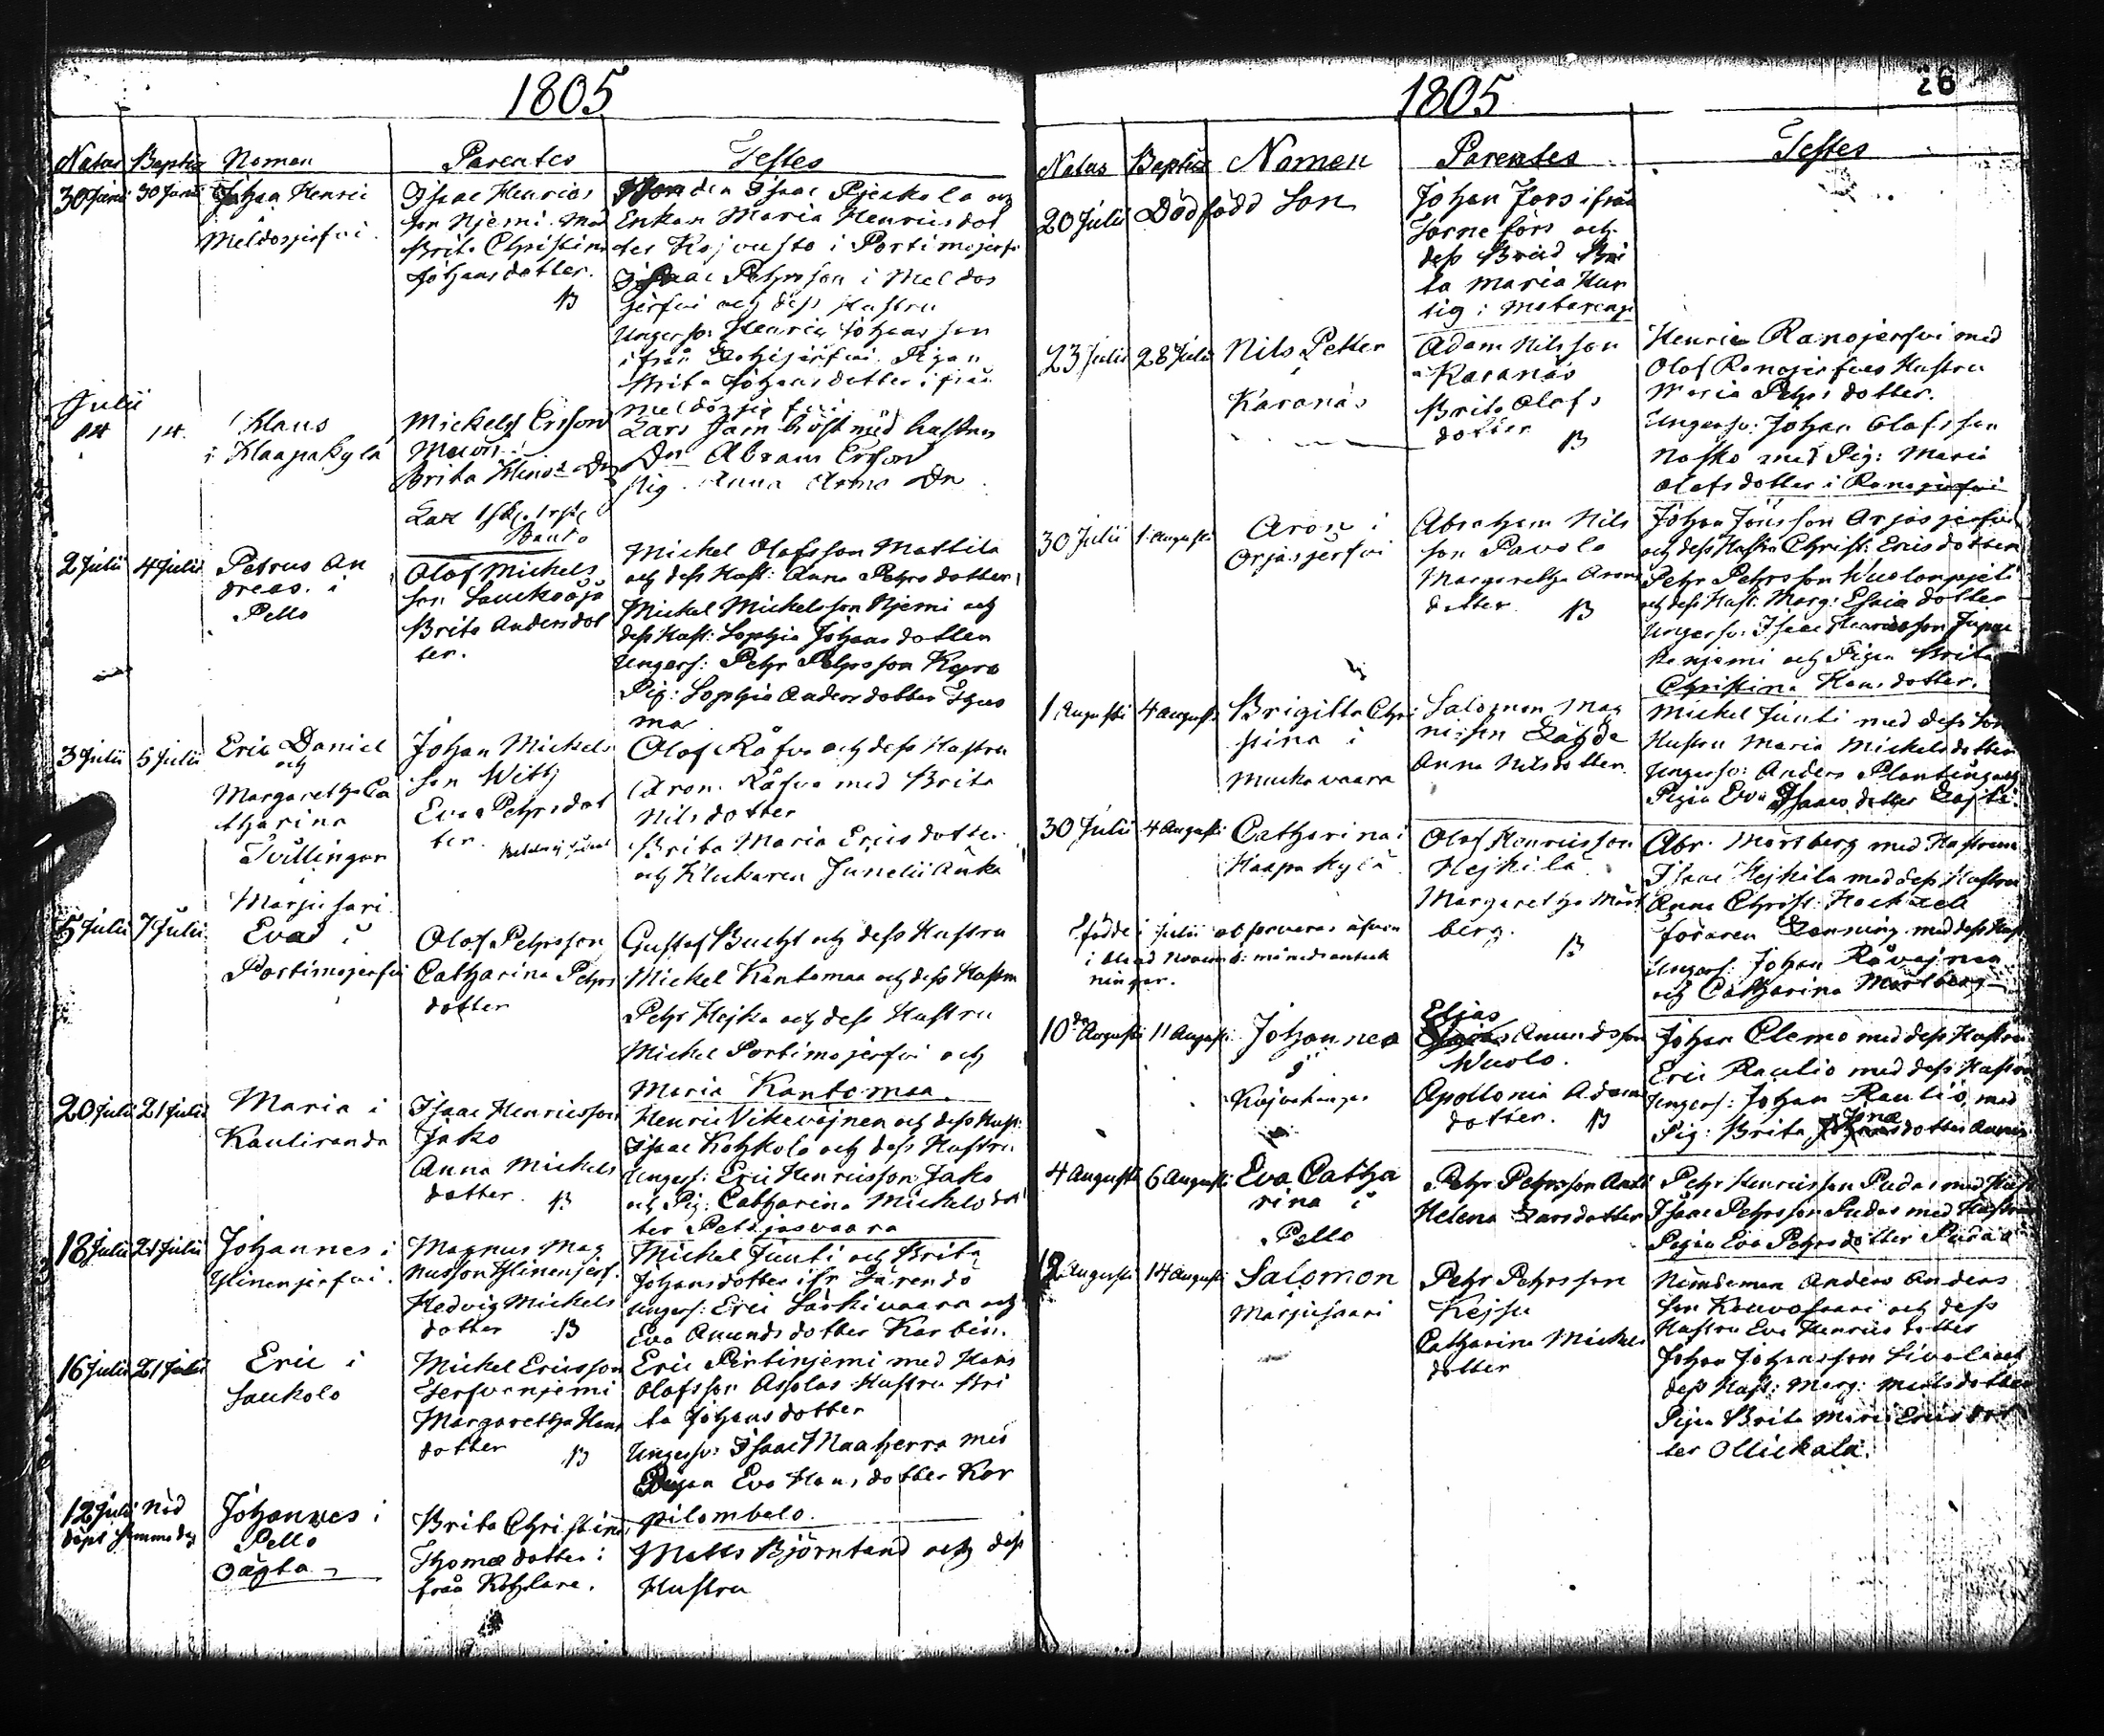 1805
Natus Baptis Nomen Parentes Testes
30 Junii 30 Junii Johan Henric
Meldosjerfvi
Isaac Henrics
son Njemi. Mod
Brita Christina
Johansdotter.
B
Isaac och
Enkan Maria Henricsdot
ter i Portimojerfvi
Isaac Pehrsson i Meldos
jerfvi och dess Hustru
Ungersv: Henric Johansson
ifrån Pigan
Brita Johansdotter ifrån
Meldosjerfvi
Julii
14 14.
Klaus
i Haapakylä
Mickels Ersson
Brita
Lars med hustru
Dn Abram Ersson
Pig. Anna Dr
2 Julii 4 Julii
Petrus An
dreas. i
Pello
Olof Michels
son Laukoäjä
Brita Andersdot
ter.
Michel Olofsson Mattila
och dess Hust: Anna Pehrsdotter
Michel Michelsson Njemi och
dess Hust: Sophia Johansdotter
Ungers: Pehr Pehrsson Kypro
Pig: Sophia Andersdotter
ma
3 Julii 5 Julii
Eric Daniel
och
Margaretha Ca
tharina
Tvillingar
Marjusari
Johan Michels
son Witty
Eva Pehrsdot
ter.
Olof Råfva och dess Hustru
Aron Råfva med Brita
Nilsdotter
Brita Maria Ericsdotter
och Klockaren Junelii Änka
5 Julii 7 Julii
Eva i
Portimojerfvi
Olof Pehrsson
Catharina Pehrs
dotter
Gustaf Bucht och dess Hustru
Michel Kantomaa och dess Hustru
Pehr Hejka och dess Hustru
Michel Portimojerfvi och
Maria Kantomaa.
20 Julii 21 Julii
Maria i
Kauliranda
Isaac Henricsson
Jako
Anna Michels
dotter. B
Henric Vikeväjnen och dess Hust:
Isaac Kohkolo och dess Hustru
Ungers: Eric Henricsson Jako
och Pig: Catharina Michelsdot
ter Petäjasvaara
18 Julii 21 Julii
Johannes i
Ylinenjerfvi.
Magnus Mag
nusson Ylinenjerf.
Hedvig Michels
dotter B
Michel Junti och Brita
Johansdotter ifr Tärendö
Ungers: Eric Särkivaara och
Eva Amundsdotter Karbin.
16 Julii 21 Julii
Eric i
Jaukolo
Michel Ericsson
Jerfvenjemi
Margaretha Hans
dotter B
Eric Pirtinjemi med Hans
Olofsson Assolas Hustru Bri
ta Johansdotter
Ungersv: Isaac Maaherra med
Pigan Eva Hansdotter Kor
pilombolo.
12 Julii Nöd
döpt samma dag
Johannes i
Pello
oägta
Brita Christina
Thomædotter i
från Kohlare.
Matts Björntand och dess
Hustru
1805
26
Natus Baptis Nomen Parentes Testes
20 Julii Dödfödd Son
Johan Fors ifrån
Torne fors och
dess Brud Bri
ta Maria Hur
tig i Matarengi
23 Julii 28 Julii
Nils Petter
i
Karanäs
Adam Nilsson
Karanäs
Brita Olofs
dotter B
Henric Ranojerfvi med
Olof Ranojerfves Hustru
Maria Pehrsdotter.
Ungersv: Johan Olofsson
Nasko med Pig: Maria
Olofsdotter i Ranojerfvi
30 Julii 1 Augusti
Aron i
Orjasjerfvi
Abraham Nils
son Pavola
Margaretha Arons
dotter B
Johan Jönsson Orjasjerfvi
och dess Hustru Christ: Ericsdotter
Pehr Pehrsson
och dess Hust: Marg: Esaiædotter
Ungersv: Isaac Henricsson
njemi och Pigan Brita
Christina Hansdotter.
1 Augusti 4 Augusti
Brigitta Chri
stina i
Muckavaara
Salomon Mag
nusson
Anna Nilsdotter.
Michel Junti med dess
Hustru Maria Michelsdotter
Ungersv: Anders Planting och
Pigan Eva Isaacsdotter
30 Julii 4 Augusti
Catharina i
Haapakylä
Olof Henricsson
Hejkilä
Margaretha Mört
berg.
B
Abr. Mörtberg med Hustrun
Isaac Hejkilä med dess Hustru
Anna Christ:
föraren med dess Hust
Ungers: Johan Råvajnen
och Catharina Mörtberg
födde i Julii observeras äfven
i bland Novemb: månads anteck
ningar.
10de Augusti 11 Augusti
Johannes
i
Kojvokangas
Elias
Amundsson
Wuolo.
Apollonia Adams
dotter. B
Johan Clemo med dess Hustru
Eric Rautio med dess Hustru
Ungers: Johan Rautio, med
Pig: Brita Jonædotter
4 Augusti 6 Augusti
Eva Catha
rina i
Pello
Pehr Pehrsson Antti
Helena Larsdotter
Pehr Henricsson Pudas med Hust
Isaac Pehrsson Pudas med Hustru
Pigan Eva Pehrsdotter Pudas
12 Augusti 14 Augusti
Salomon
Marjusaari
Pehr Pehrsson
Kejsu
Catharina Michels
dotter
Nämdeman Anders Anders
son Kouvosaari och dess
Hustru Eva Henricsdotter
Johan Johansson Sivola och
dess Hust: Marg: Michelsdotter
Pigan Brita Maria Ericsdot
ter Ollickala.